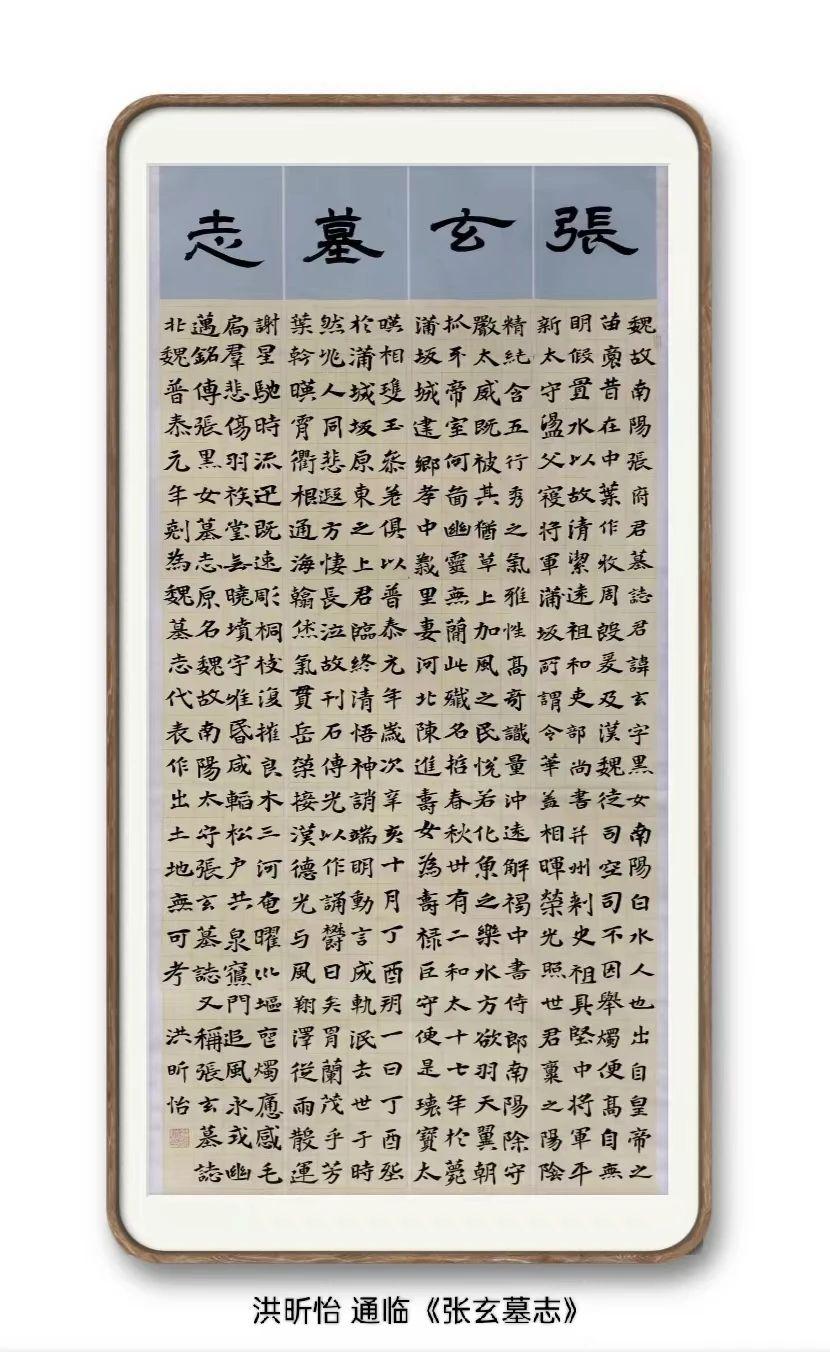 張玄墓志
魏故南陽張府君墓誌君諱玄字黑女南陽白水人也出自皇帝之
苗裔昔在中葉作收周殷爰及漢魏徒司空司不因舉燭便高自無
明假置水以故清潔遠祖和吏部尚書并州刺史祖具堅中將軍平
新太守盪父寝將軍蒲坂所謂令華蓋相暉榮光照世君稟之陽陰
精純含五行秀之氣雅性高奇識量沖遠解褐中書侍郎南陽除守
嚴太威既被其猶草上加風之民悅若化魚之樂水方欲羽天翼朝
抓不帝室何啚幽靈無蕳此殲名哲春秋丗有二和太十七年於薨
蒲坂城建鄉孝中義里妻河北陳進壽女為壽祿巨守便是瓌寶太
暎相雙玉叅差俱以普泰元年歲次辛亥十月丁酉朔一日丁酉
於蒲城坂原東之上君臨終清悟神誚端明動言成軌泯去世于時
然兆人同悲遐方悽長泣故刊石傳光以作誦欝曰矣胃蘭茂乎芳
葉幹暎霄衢根通海翰烋氣貫岳榮接漢德光与風翔澤從雨散運
謝星馳時流迅既速彫桐枝復摧良木三河奄曜巛燭應感毛
扃羣悲傷羽族堂無曉墳宇唯昏咸韜松户共泉竆門追風永戎幽
邁銘傳張黑女墓志原名魏故南陽太守張玄墓誌又稱張玄墓誌
北魏普泰元年剋為魏墓志代表作出土地無可考 洪昕怡
洪昕怡 通临《张玄墓志》